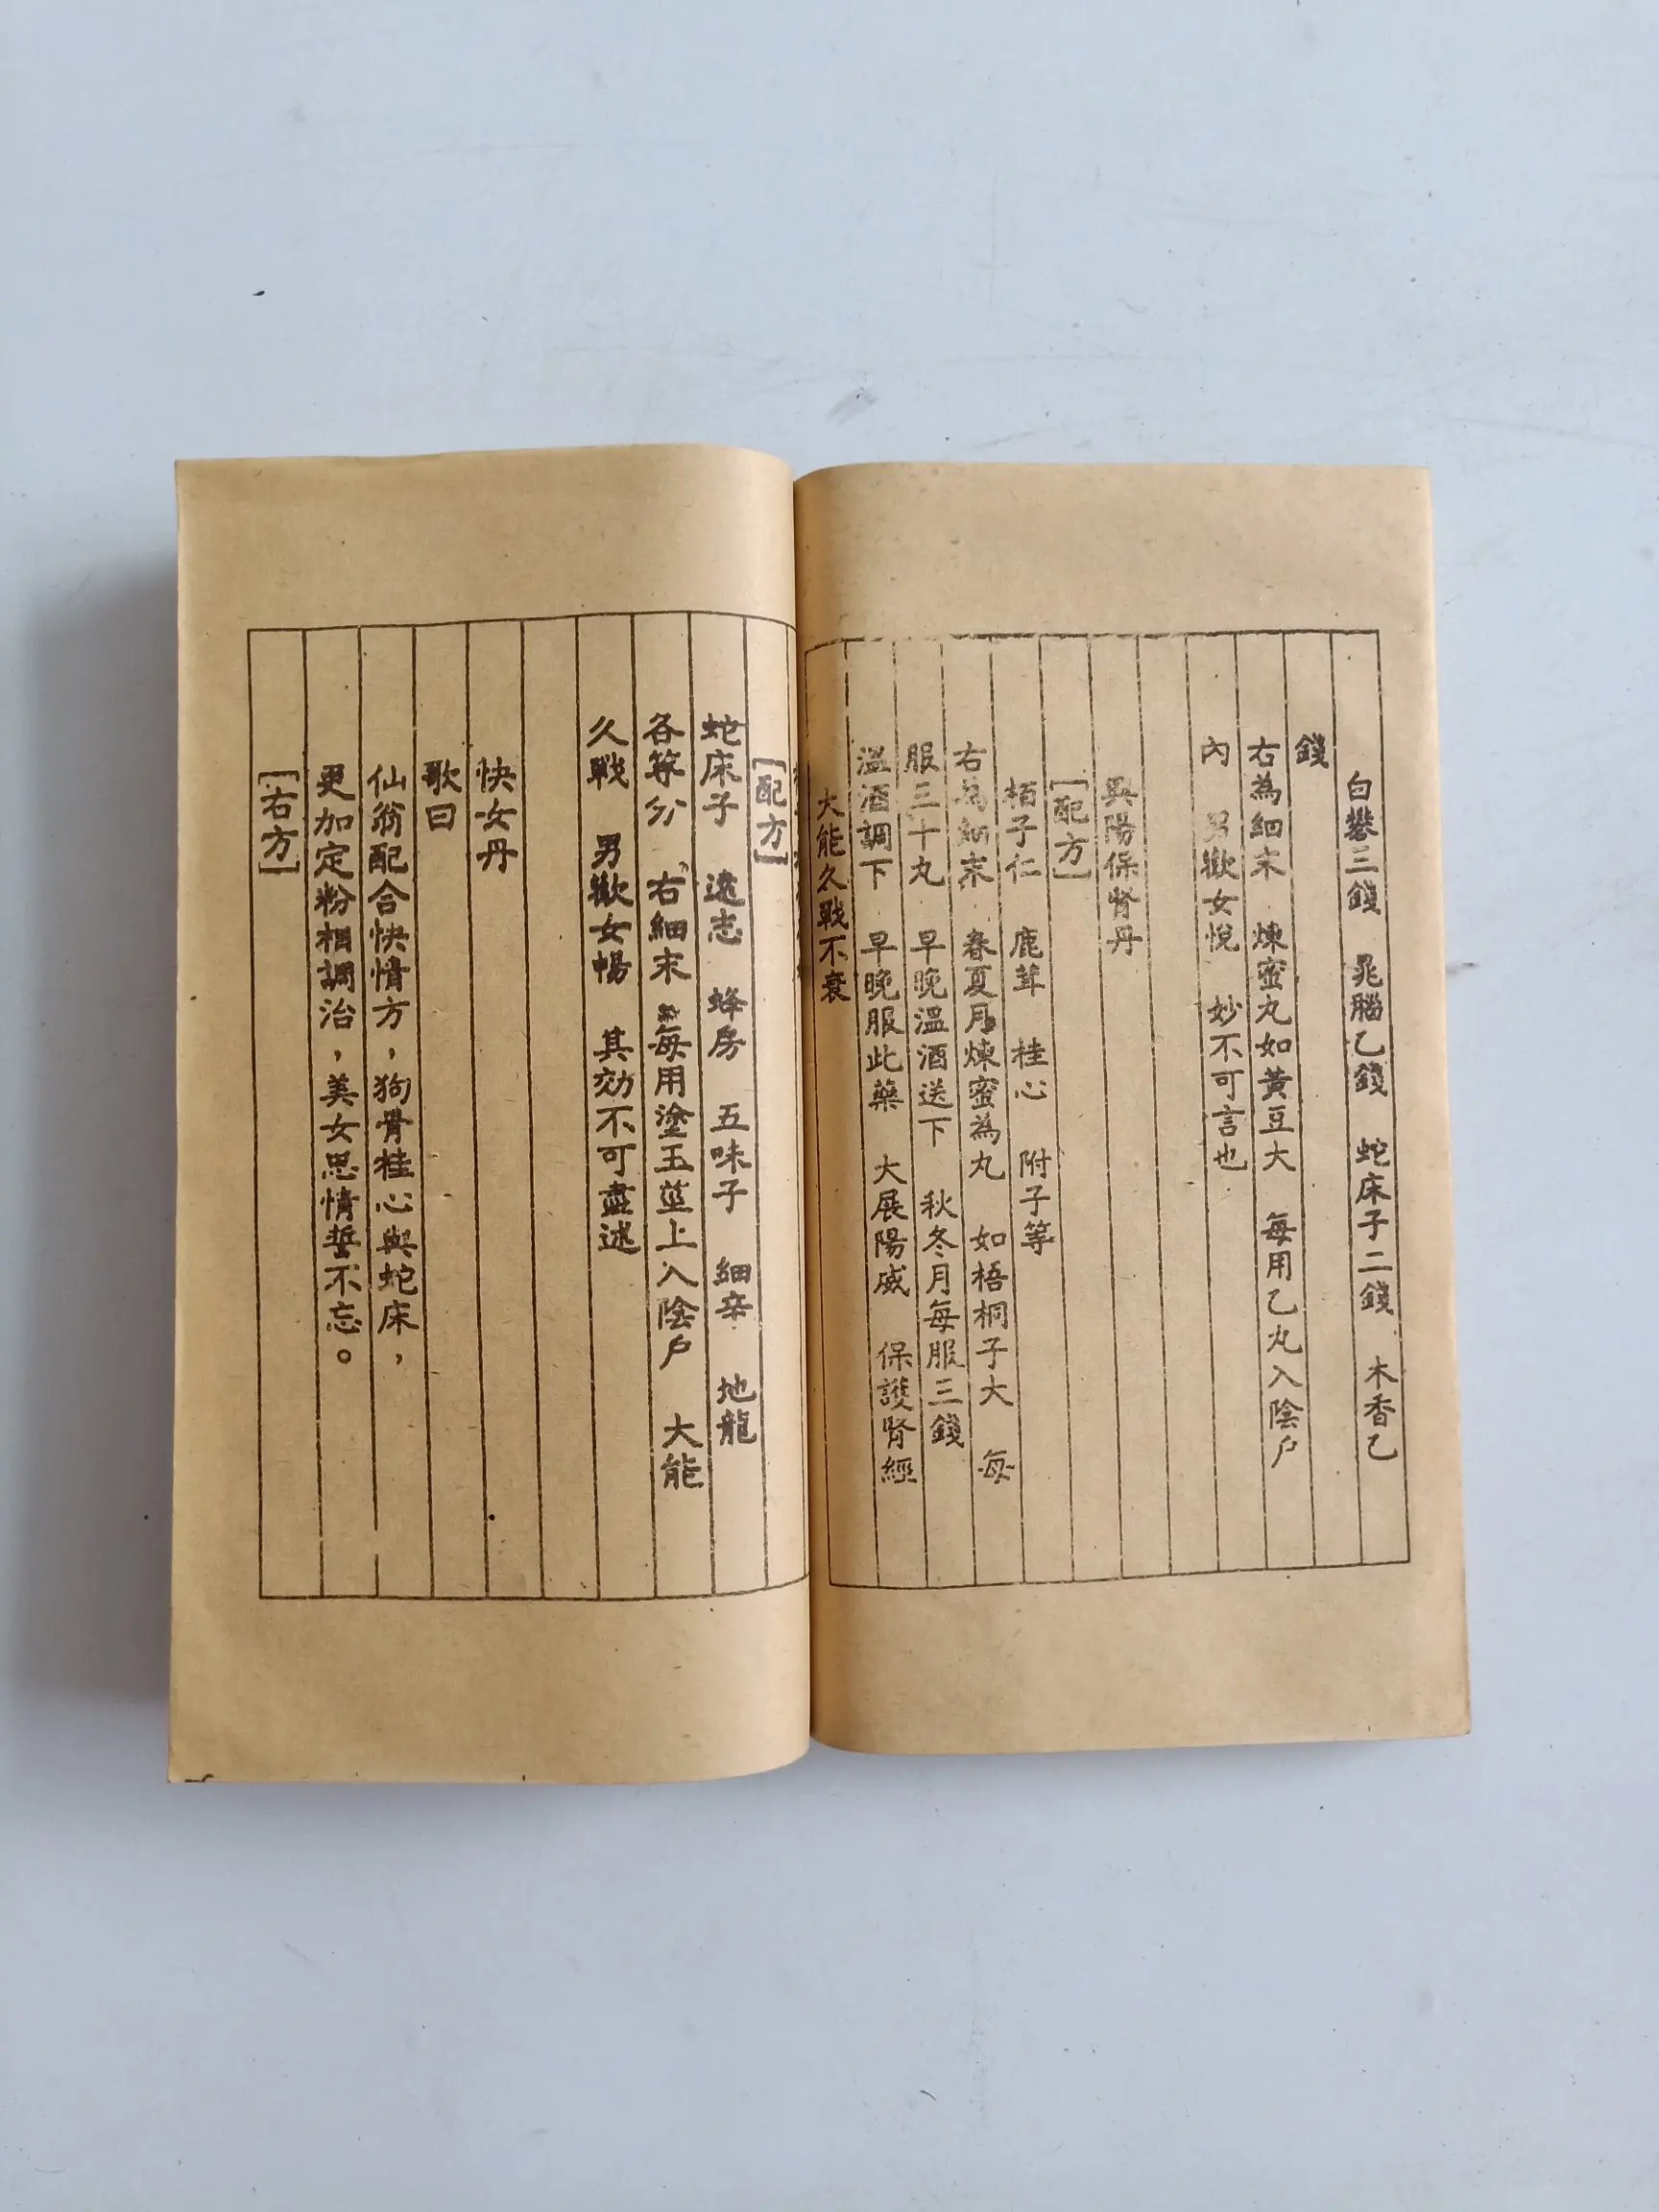 白礬三錢　晁腦乙錢　蛇床子二錢　木香乙
錢
右為細末　煉蜜丸如黃豆大　每用乙丸入陰户
內　男歡女悅　妙不可言也
興陽保腎丹
［配方］
栢子仁　鹿茸　桂心　附子等
右為細末　春夏月煉蜜為丸　如梧桐子大　每
服三十丸　早晚溫酒送下　秋冬月每服三錢
溫酒調下　早晚服此藥　大展陽威　保護腎經
大能久戰不衰
［配方］
蛇床子　遠志　蜂房　五味子　細辛　地龍
各等分　右細末　每用塗玉莖上入陰户　大能
久戰　男歡女暢　其効不可盡述
快女丹
歌曰
仙翁配合快情方，狗骨桂心與蛇床，
更加定粉相調治，美女思情誓不忘。
［右方］